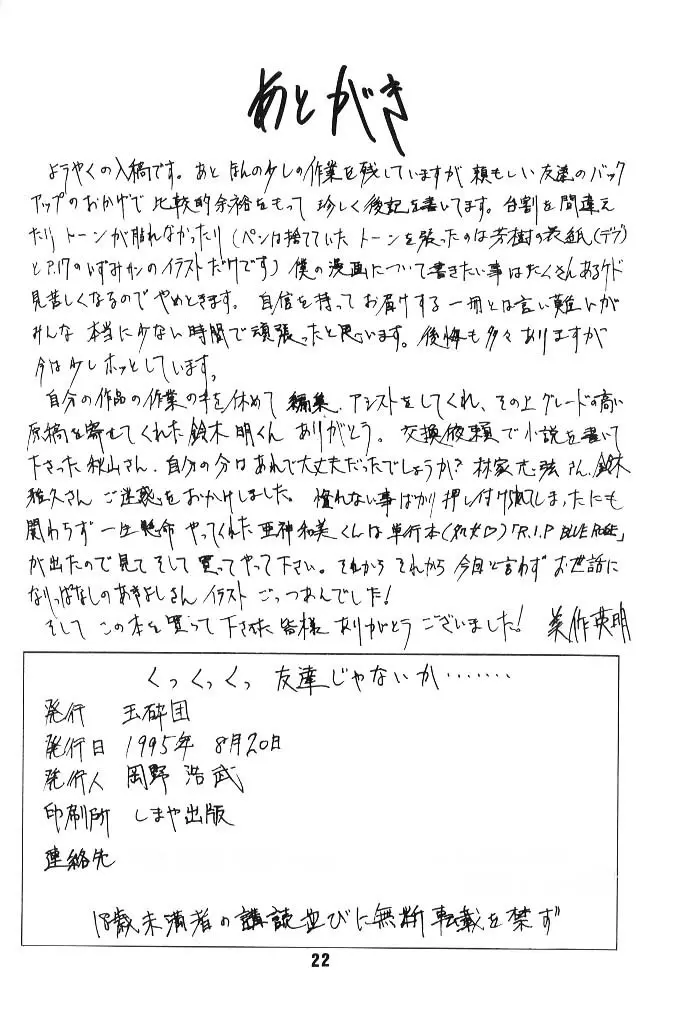 あとがき
ようやくの入稿です。あと ほんの少しの作業を残していますが 頼もしい友達のバック
アップのおかげで 比較的余裕をもって 珍しく後記を書いてます。台割を間違え
たり トーンが貼れなかったり (ペンは捨てていた トーンを張ったのは芳樹の表紙(デブ)
とP.17のいずみかのイラストだけです) 僕の漫画について書きたい事はたくさんあるケド
見苦しくなるのでやめときます。自信を持ってお届けする一冊とは言い難いが
みんな 本当に少ない時間で頑張ったと思います。後悔も多々ありますが
今は少しホッとしています。
自分の作品の作業の手を休めて 編集、アシストをしてくれ、その上グレードの高い
原稿を寄せてくれた鈴木明くん ありがとう。交換依頼で小説を書いて
下さった秋山さん、自分の分はあれで大丈夫だったでしょうか? 林家志弦さん、鈴木
雅久さん ご迷惑をおかけしました。慣れない事ばかり押し付けられてしまったにも
関わらず 一生懸命 やってくれた 亜神和美くんは単行本(処女♡)「R.I.P BLUE ROSE」
が出たので見て そして 買ってやって下さい。それから それから 今回と言わず お世話に
なりっぱなしのあきよしさん イラスト ごっつあんでした!
そして この本を買って下さった 皆様 ありがとうございました! 美作英明
くっくっくっ 友達じゃないか・・・・・・・
発行 玉砕団
発行日 1995年 8月20日
発行人 岡野 浩武
印刷所 しまや出版
連絡先
18歳未満者の講読並びに無断転載を禁ず
22